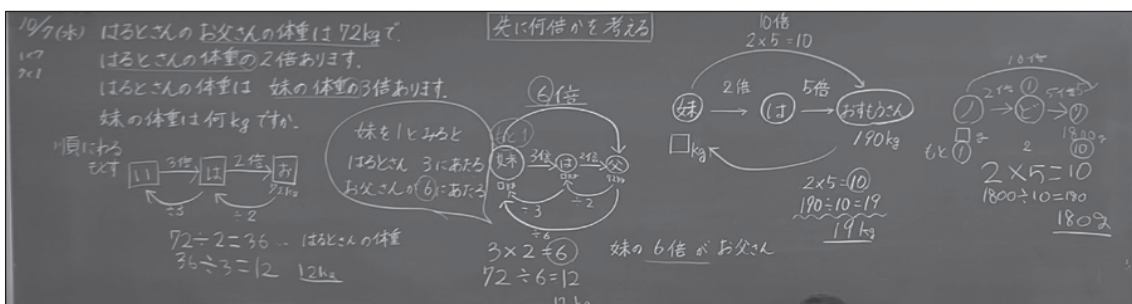 10/7(水) はるとさんのお父さんの体重は72kgで、
はるとさんの体重の2倍あります。
はるとさんの体重は 妹の体重の3倍あります。
妹の体重は何kgですか。
順にわる
もどす
い 3倍 は 2倍 お
72kg
÷3 ÷2
72÷2=36… はるとさんの体重
36÷3=12 12kg
先に何倍かを考える
6倍
妹を1とみると
はるとさん 3にあたる
お父さんが6にあたる
もと1
妹 3倍 は 2倍 父
72kg
÷3 ÷2
÷6
3×2=6
72÷6=12
12kg
妹の6倍がお父さん
10倍
2×5=10
妹 2倍 は 5倍 おすもうさん
□kg 190kg
2×5=10
190÷10=19
19kg
10倍
2倍 5倍
□g 1800g
もと① 2 ⑩
2×5=10
1800÷10=180
180g